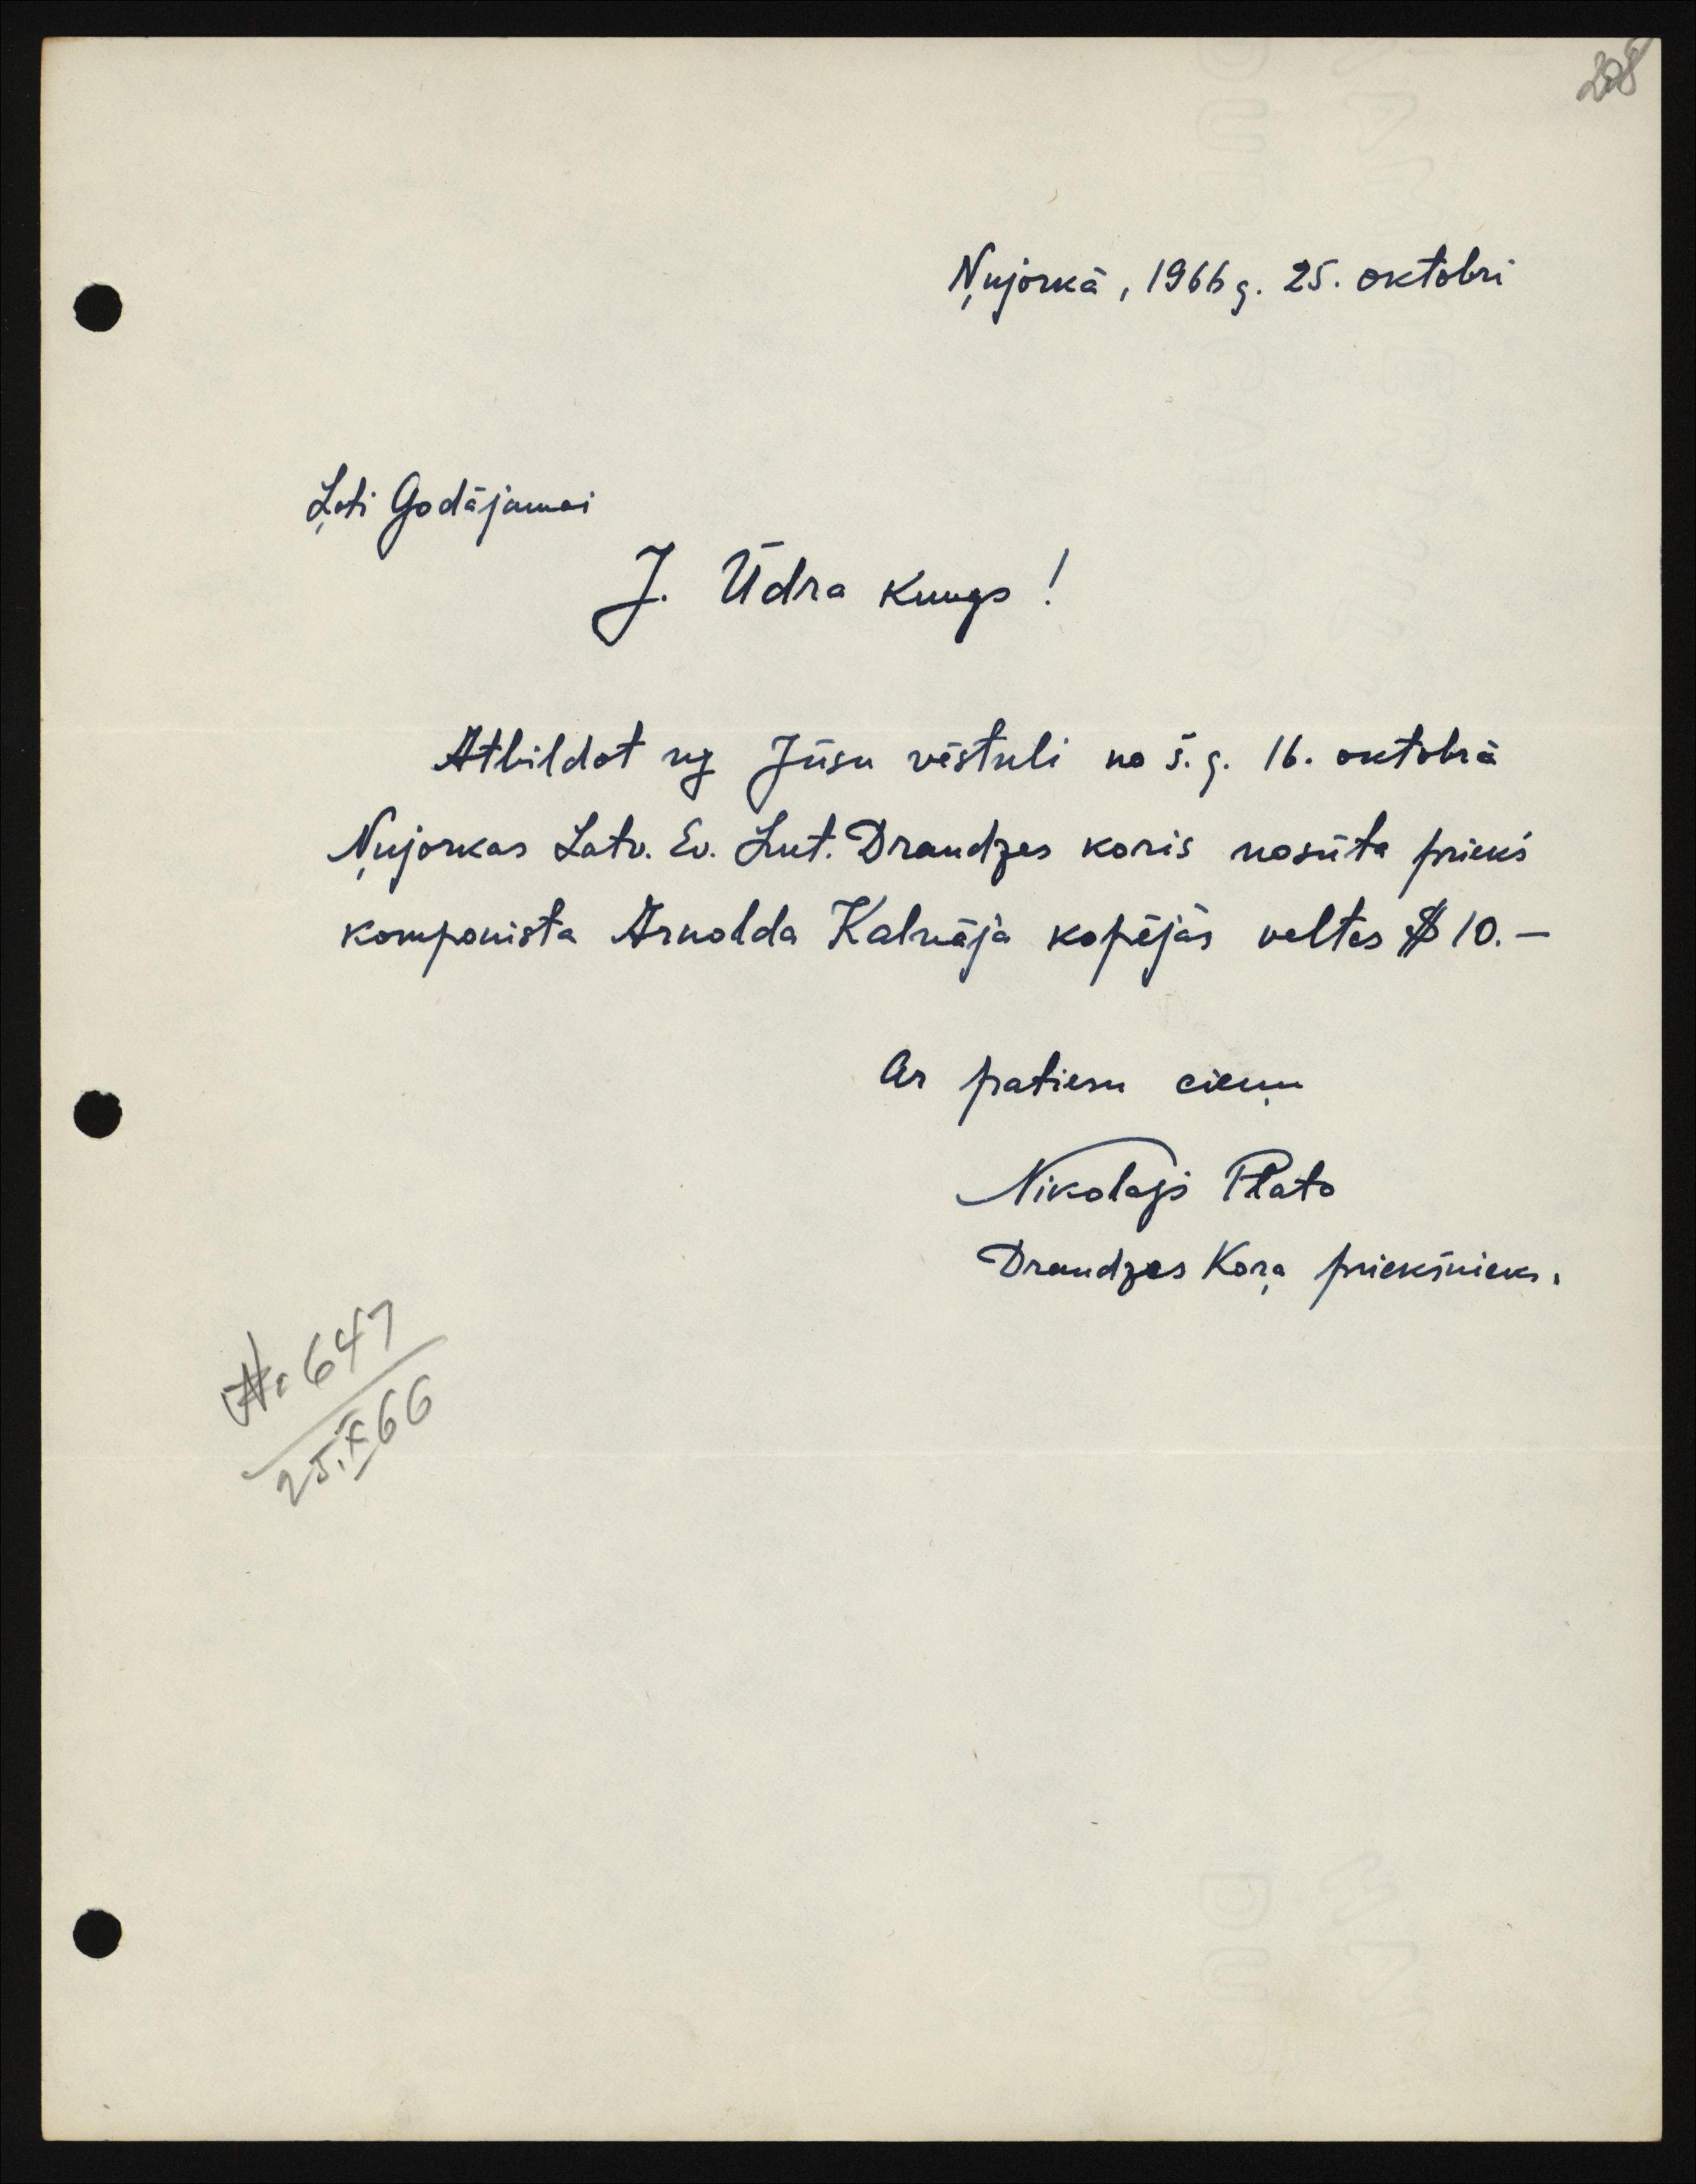 208
Ņujorkā, 1966 g. 25. oktobrī
Ļoti Godājamai
J. Ūdra kungs!
Atbildot uz Jūsu vēstuli no š.g. 16. oktobrā
Ņujorkas Latv. Ev. Lut. Draudzes koris nosūta priekš
komponista Arnolda Kalnāja kopējās veltes $ 10.—
Ar patiesu cieņu
Nikolajs Plato
Draudzes Koŗa priekšnieks.
No 647
25.X66